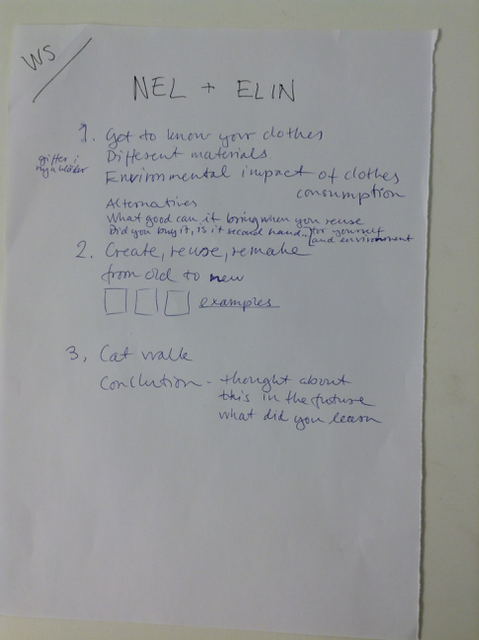 WS
NEL + ELIN
1. Get to know your clothes
Different materials
gifter i
nya kläder
Environmental impact of clothes
consumption
Alternatives
What good can it bring when you reuse
Did you buy it, is it second hand... for yourself
and environment
2. Create, reuse, remake
from old to new
examples
3, Cat walk
Conclution - thought about
this in the future
what did you learn